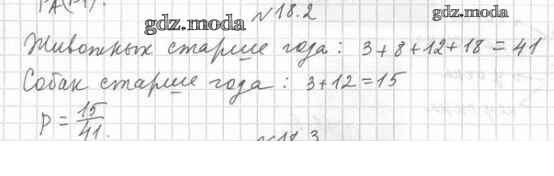 P_A(
gdz.moda
№18.2
gdz.moda
Животных старше года: 3+8+12+18=41
Собак старше года: 3+12=15
P = 15/41.
№18.3